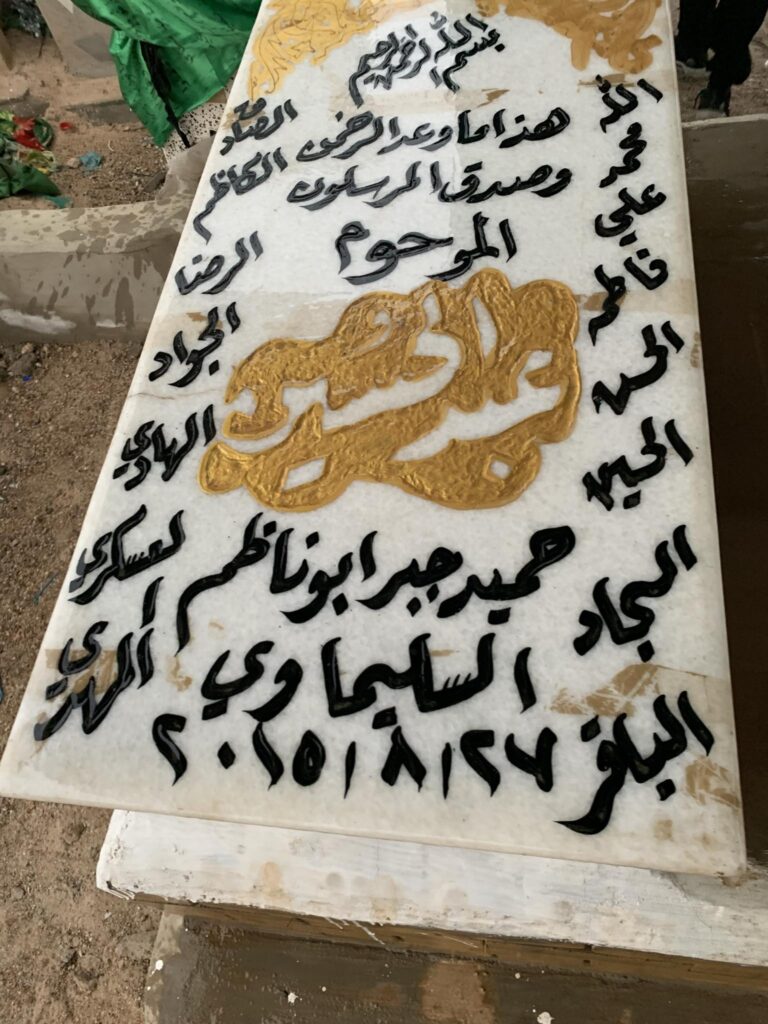 بسم الله الرحمن الرحيم
هذا ما وعد الرحمن
وصدق المرسلون
المرحوم
عبد الحسين
حميد جبر ابو ناظم
السليماوي
٢٠١٥/٨/٢٧
الله
محمد
علي
فاطمه
الحسن
الحسين
السجاد
الباقر
الصادق
الكاظم
الرضا
الجواد
الهادي
العسكري
المهدي